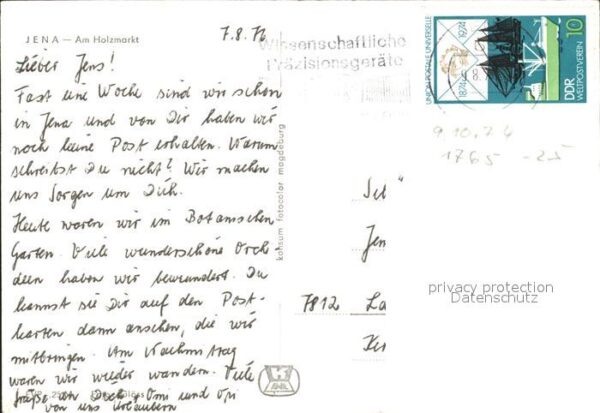 7.8.76
JENA – Am Holzmarkt
Lieber Jens!
Fast eine Woche sind wir schon
in Jena und von Dir haben wir
noch keine Post erhalten. Warum
schreibst Du nicht? Wir machen
uns Sorgen um Dich.
Heute waren wir im Botanischen
Garten. Viele wunderschöne Orch-
deen haben wir bewundert. Du
kannst sie Dir auf den Post-
karten dann ansehen, die wir
mitbringen. Am Nachmittag
waren wir wieder wandern. Viele
Grüße an Dich, Omi und Opi
von uns Urlaubern
konsum fotocolor magdeburg
Wissenschaftliche
Präzisionsgeräte
UNION POSTALE UNIVERSELLE
1874 1974
10
DDR
WELTPOSTVEREIN
9.10.74
1765 -25
Jen
7812 La
privacy protection
Datenschutz